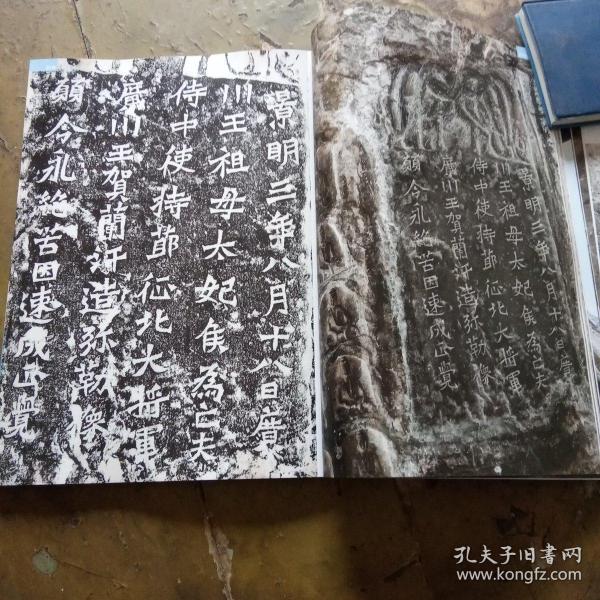 景明三年八月十八日廣
川王祖母太妃侯為亡夫
侍中使持節征北大將軍
廣川王賀蘭汗造弥勒像
願令永絶苦因速成正覺
景明三年八月十八日廣
川王祖母太妃侯為亡夫
侍中使持節征北大將軍
廣川王賀蘭汗造弥勒像
願令永絶苦因速成正覺
孔夫子旧書网
www.kongfz.com